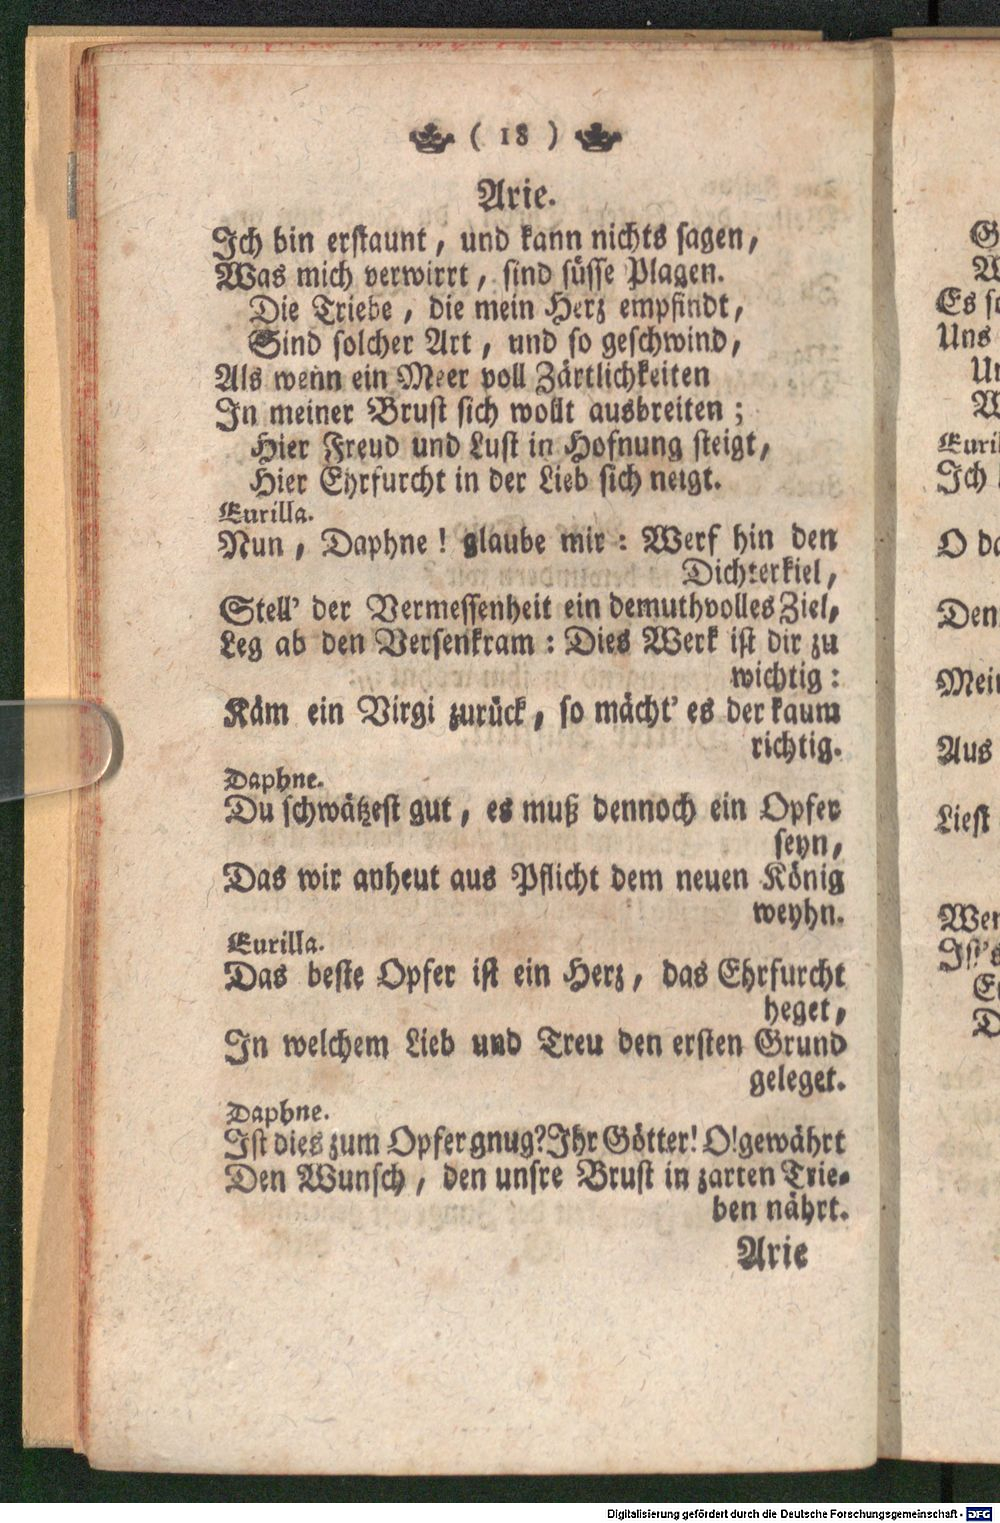 ( 18 )
Arie.
Ich bin erstaunt, und kann nichts sagen,
Was mich verwirrt, sind süsse Plagen.
Die Triebe, die mein Herz empfindt,
Sind solcher Art, und so geschwind,
Als wenn ein Meer voll Zärtlichkeiten
In meiner Brust sich wollt ausbreiten;
Hier Freud und Lust in Hofnung steigt,
Hier Ehrfurcht in der Lieb sich neigt.
Eurilla.
Nun, Daphne! glaube mir: Werf hin den
Dichterkiel,
Stell' der Vermessenheit ein demuthvolles Ziel,
Leg ab den Versenkram: Dies Werk ist dir zu
wichtig:
Käm ein Virgi zurück, so mächt' es der kaum
richtig.
Daphne.
Du schwätzest gut, es muß dennoch ein Opfer
seyn,
Das wir anheut aus Pflicht dem neuen König
weyhn.
Eurilla.
Das beste Opfer ist ein Herz, das Ehrfurcht
heget,
In welchem Lieb und Treu den ersten Grund
geleget.
Daphne.
Ist dies zum Opfer gnug? Ihr Götter! O! gewährt
Den Wunsch, den unsre Brust in zarten Trie-
ben nährt.
Arie
Es
Uns
Ich
O
Den
Aus
Liest
Digitalisierung gefördert durch die Deutsche Forschungsgemeinschaft - DFG